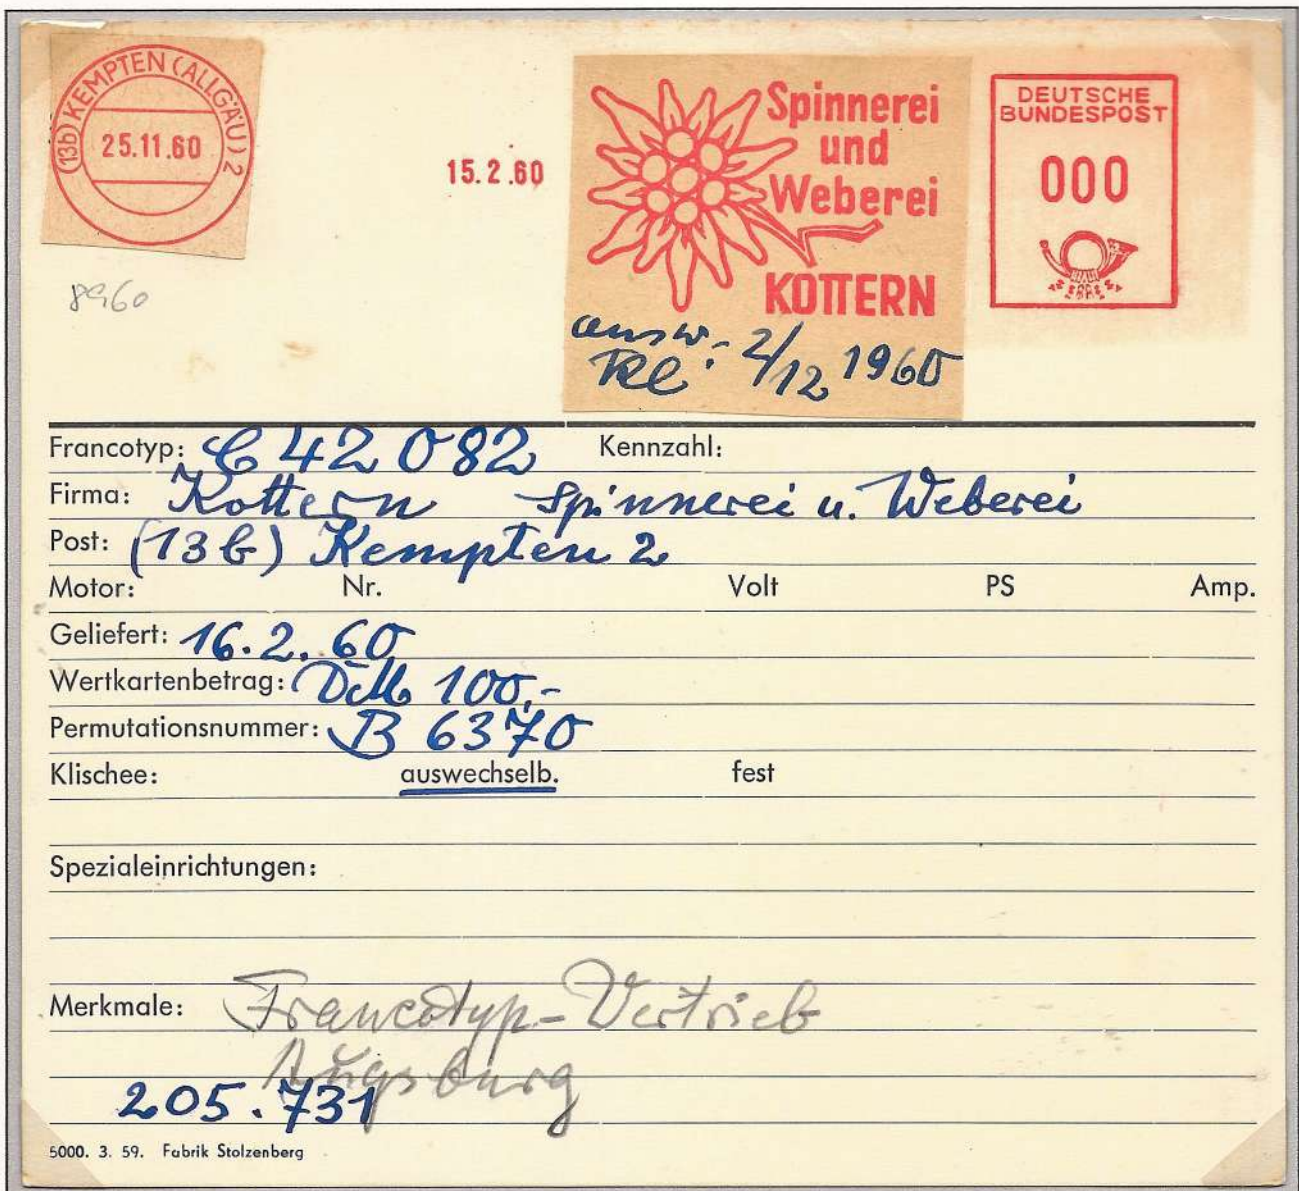 (13b) KEMPTEN (ALLGÄU) 2
25.11.60
15.2.60
Spinnerei
und
Weberei
KOTTERN
DEUTSCHE
BUNDESPOST
000
8960
ausw. 2/12 1960
Kl.
Francotyp: C 42 082 Kennzahl:
Firma: Kottern Spinnerei u. Weberei
Post: (13b) Kempten 2
Motor: Nr. Volt PS Amp.
Geliefert: 16.2.60
Wertkartenbetrag: DM 100.-
Permutationsnummer: B 6370
Klischee: auswechselb. fest
Spezialeinrichtungen:
Merkmale: Francotyp-Vertrieb
Augsburg
205.731
5000. 3. 59. Fabrik Stolzenberg